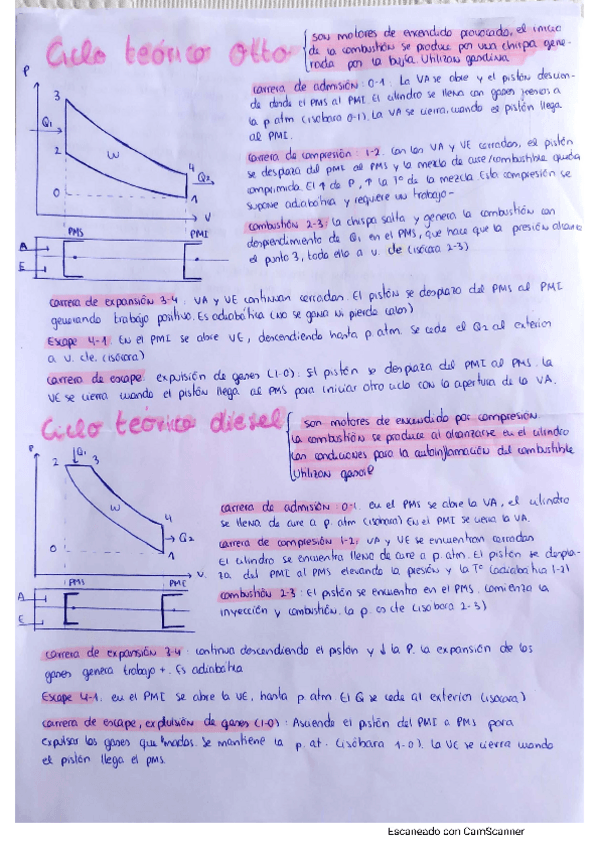 Ciclo teórico Otto
son motores de encendido provocado, el inicio
de la combustión se produce por una chispa gene-
rada por la bujía. Utilizan gasolina
P
3
Q1
2
W
4
Q2
0
1
V
PMS
PMI
A
E
carrera de admisión: 0-1. La VA se abre y el pistón descien-
de desde el PMS al PMI. El cilindro se llena con gases frescos a
la p atm (isóbara 0-1). La VA se cierra cuando el pistón llega
al PMI.
carrera de compresión: 1-2. Con las VA y VE cerradas, el pistón
se desplaza del PMI al PMS y la mezcla de aire/combustible queda
comprimida. El ↑ de P, ↑ la Tº de la mezcla Esta compresión se
supone adiabática y requiere un trabajo -
combustión 2-3: la chispa salta y genera la combustión con
desprendimiento de Q1 en el PMS, que hace que la presión alcance
el punto 3, todo ello a v. cte (isócora 2-3)
carrera de expansión 3-4: VA y VE continuan cerradas. El pistón se desplaza del PMS al PMI
generando trabajo positivo. Es adiabática (no se gana ni pierde calor)
Escape 4-1: En el PMI se abre VE, descendiendo hasta p atm. Se cede el Q2 al exterior
a v. cte. (isócora)
carrera de escape: expulsión de gases (1-0): El pistón se desplaza del PMI al PMS. La
VE se cierra cuando el pistón llega al PMS para iniciar otro ciclo con la apertura de la VA.
Ciclo teórico diesel
son motores de encendido por compresión
La combustión se produce al alcanzarse en el cilindro
las condiciones para la autoinflamación del combustible
Utilizan gasoil
P
Q1
2
3
W
4
Q2
0
1
V.
PMS
PMI
A
E
carrera de admisión: 0-1. en el PMS se abre la VA, el cilindro
se llena de aire a p. atm (isóbara) En el PMI se cierra la VA.
carrera de compresión 1-2: VA y VE se encuentran cerradas
El cilindro se encuentra lleno de aire a p. atm. El pistón se despla-
za del PMI al PMS elevando la presión y la Tº (adiabática 1-2)
combustión 2-3: El pistón se encuentra en el PMS. comienza la
inyección y combustión. La p. es cte (isóbara 2-3)
carrera de expansión 3-4: continua descendiendo el pistón y ↓ la P. La expansión de los
gases genera trabajo +. Es adiabática
Escape 4-1. en el PMI se abre la VE, hasta p. atm El Q se cede al exterior (isócora)
carrera de escape, expulsión de gases (1-0): Asciende el pistón del PMI a PMS para
expulsar los gases quemados. Se mantiene la p. at. (isóbara 1-0). La VE se cierra cuando
el pistón llega el PMS.
Escaneado con CamScanner